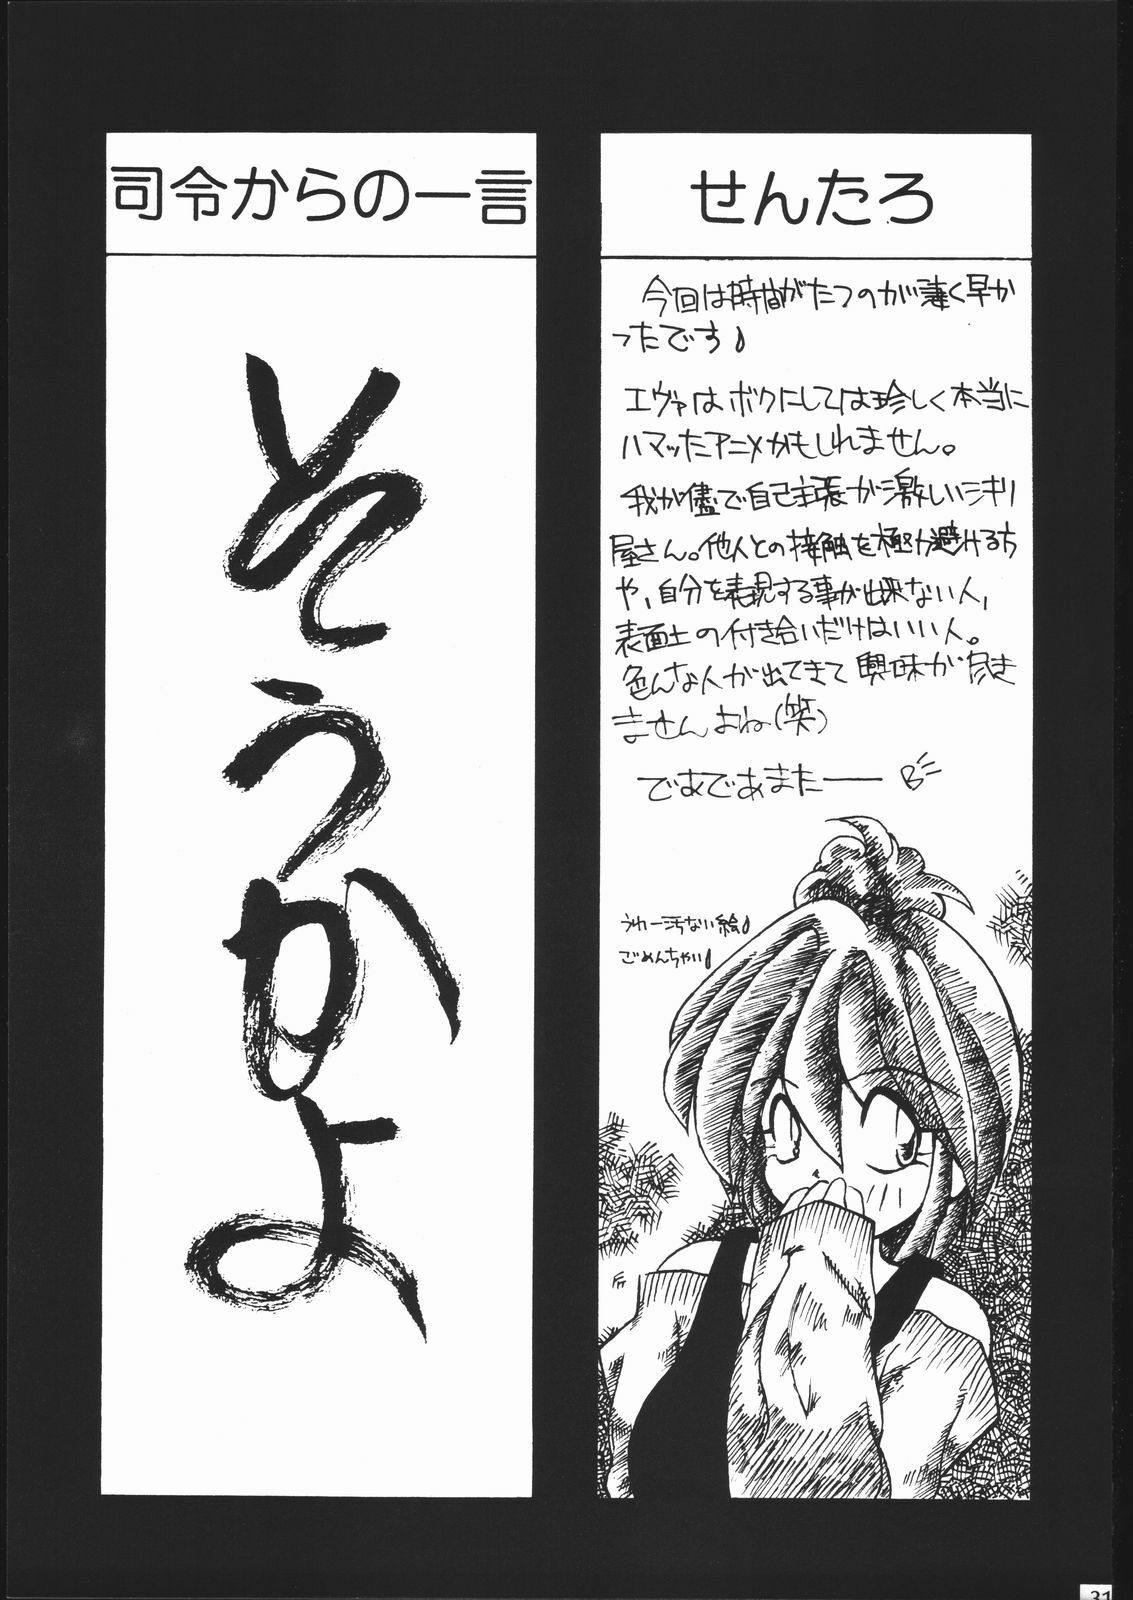 せんたろ
今回は時間がたつのが凄く早か
ったです♪
エヴァはボクにしては珍しく本当に
ハマッたアニメかもしれません。
我が儘で自己主張が激しい
屋さん。他人との接触を極力避ける方
や、自分を表現する事が出来ない人、
表面上の付き合いだけはいい人。
色んな人が出てきて興味が尽き
ませんよね(笑)
ではではまたー
うわー汚ない絵♪
ごめんちゃい♪
司令からの一言
そうかよ
31